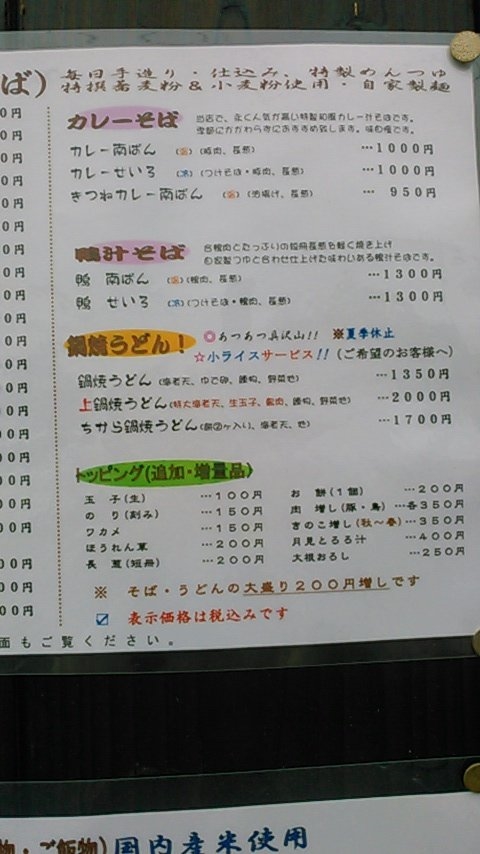 ば) 毎日手造り・仕込み、特製めんつゆ
特撰蕎麦粉&小麦粉使用・自家製麺
カレーそば
当店で、永く人気が高い特製和風カレー汁そばです。
季節にかかわらずにおすすめ致します。味自慢です。
カレー南ばん (温) (豚肉、長葱) …1000円
カレーせいろ (冷) (つけそば・豚肉、長葱) …1000円
きつねカレー南ばん (温) (油揚げ、長葱) … 950円
鴨汁そば
合鴨肉とたっぷりの短冊長葱を軽く焼き上げ
自家製つゆと合わせ仕上げた味わいある鴨汁そばです。
鴨 南ばん (温) (鴨肉、長葱) …1300円
鴨 せいろ (冷) (つけそば・鴨肉、長葱) …1300円
鍋焼うどん! ◎あつあつ具沢山!! ※夏季休止
☆小ライスサービス!! (ご希望のお客様へ)
鍋焼うどん (海老天、ゆで卵、鶏肉、野菜他) …1350円
上鍋焼うどん (特大海老天、生玉子、鴨肉、鶏肉、野菜他) …2000円
ちから鍋焼うどん (餅②ヶ入り、海老天、他) …1700円
トッピング(追加・増量品)
玉 子(生) …100円
のり(刻み) …150円
ワカメ …150円
ほうれん草 …200円
長 葱(短冊) …200円
お 餅(1個) …200円
肉 増し(豚・鳥) …各350円
きのこ増し(秋〜春) …350円
月見とろろ汁 …400円
大根おろし …250円
※ そば・うどんの大盛り200円増しです
☑ 表示価格は税込みです
面もご覧ください。
物・ご飯物) 国内産米使用